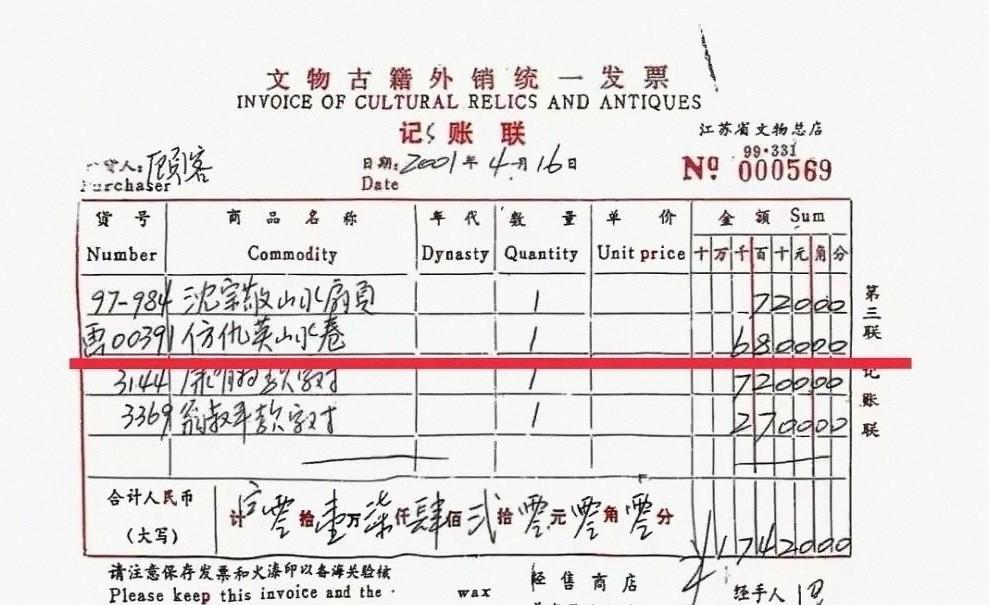 文物古籍外销统一发票
INVOICE OF CULTURAL RELICS AND ANTIQUES
记账联
江苏省文物总店
99·331
Nº 000569
货人: 顾客
Purchaser
日期: 2001年4月16日
Date
货号 商品名称 年代 数量 单价 金额 Sum
Number Commodity Dynasty Quantity Unit price 十万千百十元角分
97-984 沈宗敬山水扇页 1 72000
画00391 仿仇英山水卷 1 680000
3144 款字对 1 720000
3369 翁叔平款字对 1 270000
第三联 记账联
合计人民币 计 零拾壹万柒仟肆佰贰拾零元零角零分
(大写) 1742000
请注意保存发票和火漆印以备海关验核 经售商店
Please keep this invoice and the wax 经手人